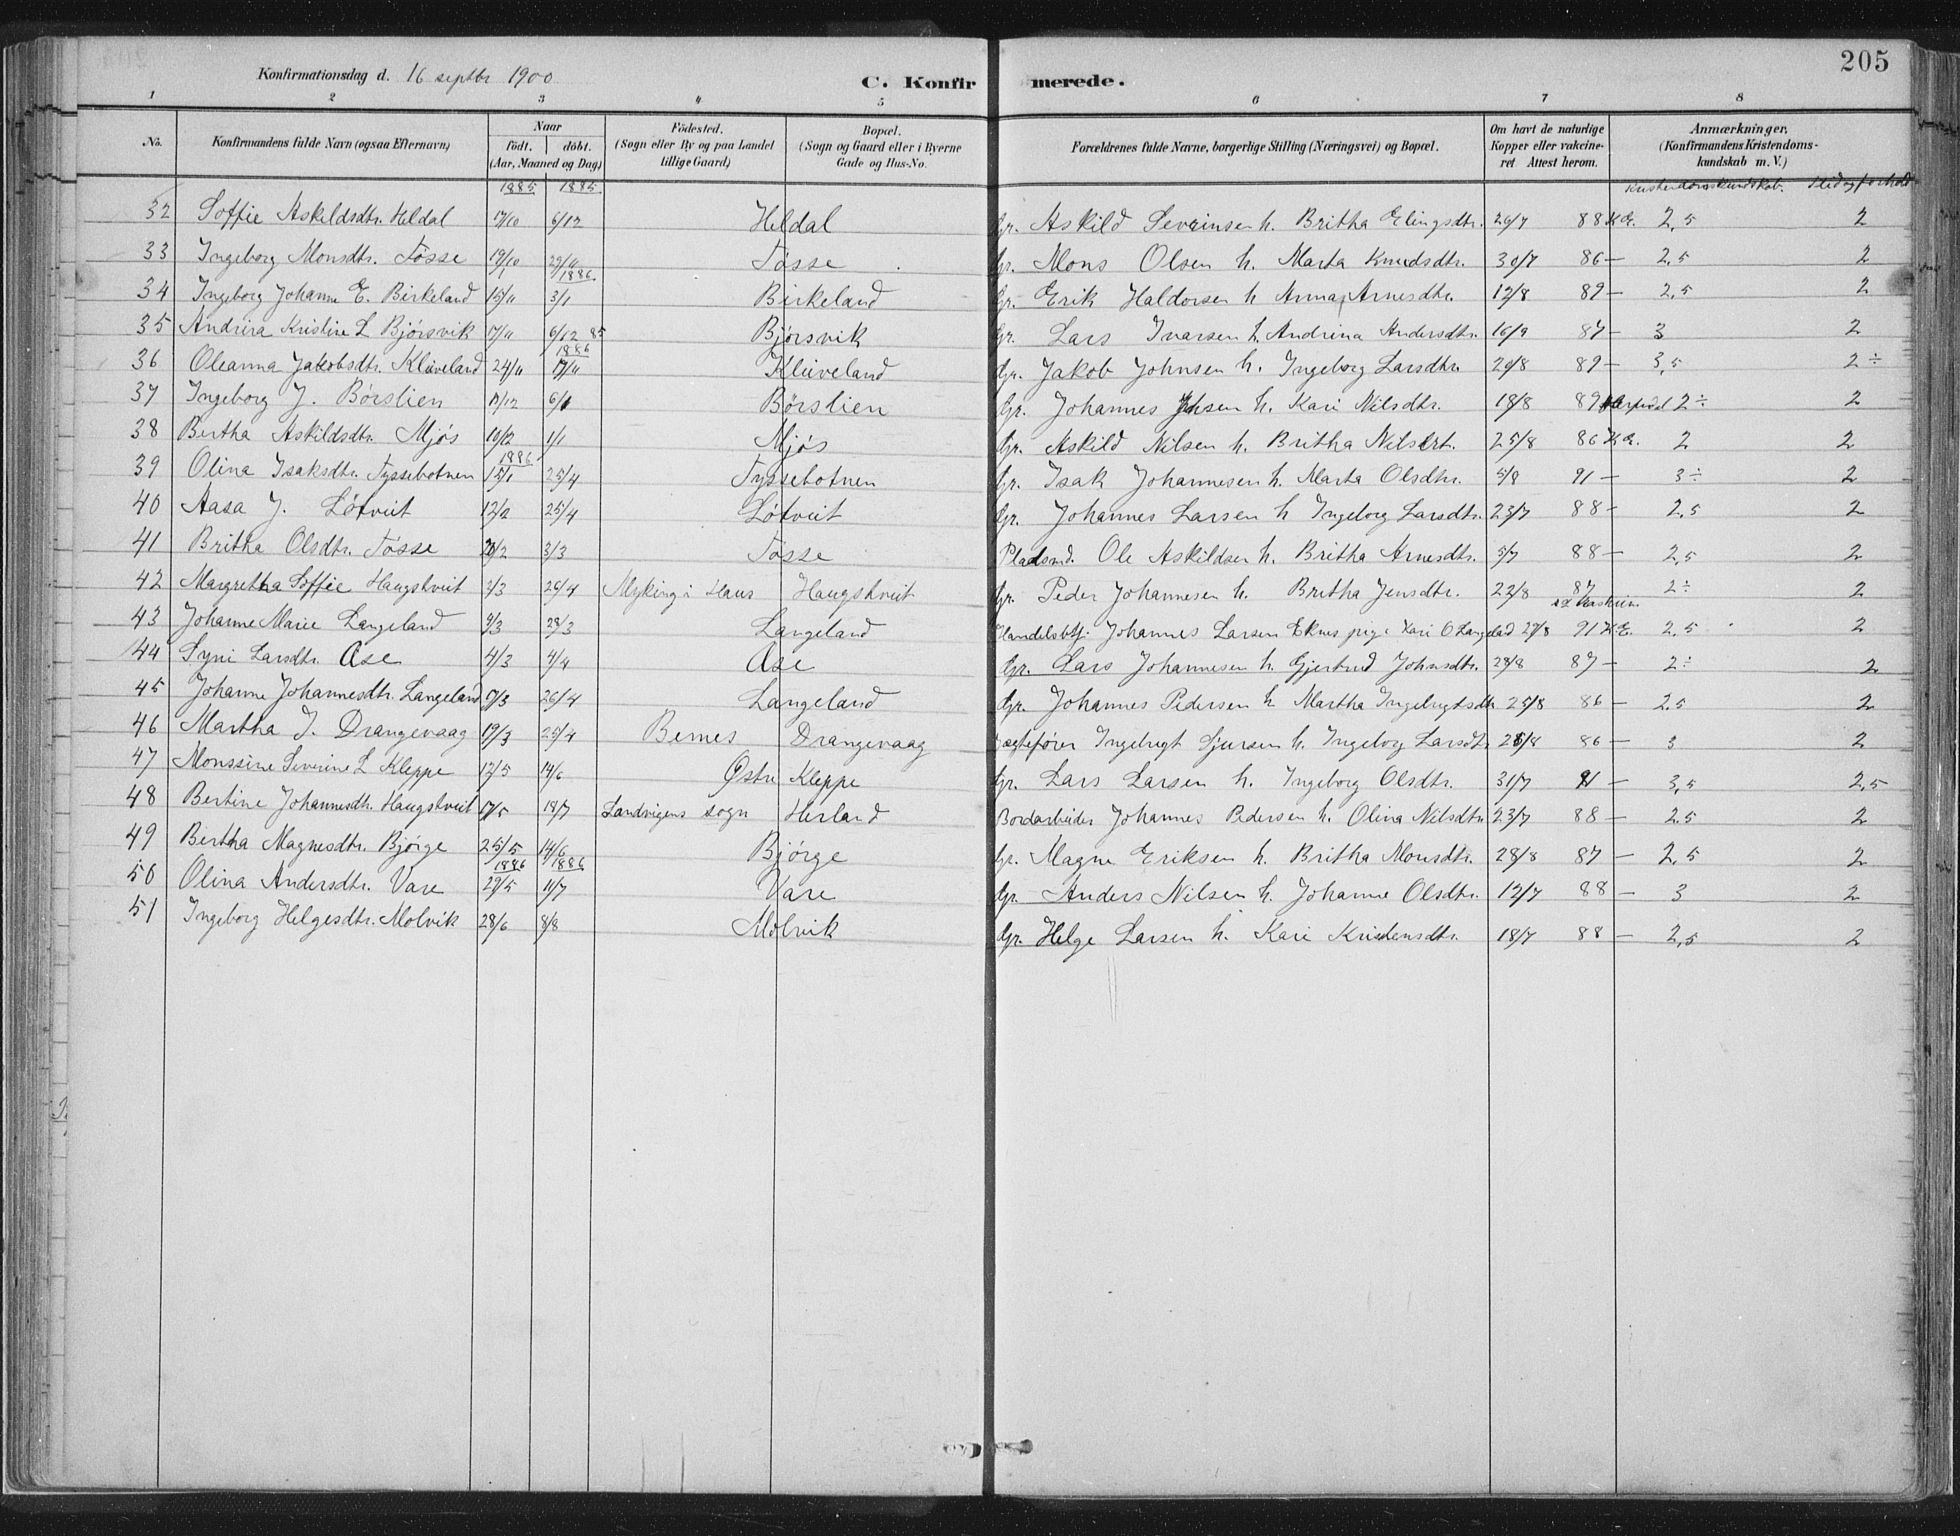 205
Konfirmationsdag d. 16 septbr 1900
C. Konfirmerede.
1 2 3 4 5 6 7 8
No. Konfirmandens fulde Navn (ogsaa Efternavn) Naar født. døbt. (Aar, Maaned og Dag) Födested. (Sogn eller By og paa Landet tillige Gaard) Bopæl. (Sogn og Gaard eller i Byerne Gade og Hus-No. Forældrenes fulde Navne, borgerlige Stilling (Næringsvei) og Bopæl. Om havt de naturlige Kopper eller vakcineret Attest herom. Anmærkninger, (Konfirmandens Kristendomskundskab m. V.)
1885 1885 Kristendomskundskab. Flid og forhold
32 Soffie Askildsdtr. Heldal 17/10 6/12 Heldal Gr. Askild Severinsen h. Britha Elingsdtr. 26/7 88 K.E. 2,5 2
33 Ingeborg Monsdtr. Tøsse 19/10 29/11 Tøsse Gr. Mons Olsen h. Marta Knudsdtr. 30/7 86 — 2,5 2
1886
34 Ingeborg Johanne E. Birkeland 15/11 3/1 Birkeland Gr. Erik Haldorsen h. Anna Arnesdtr. 12/8 89 — 2,5 2
35 Andrina Kristine L Bjørsvik 17/11 6/12 85 Bjørsvik Gr. Lars Ivarsen h. Andrina Andersdtr. 16/9 87 — 3 2
1886
36 Oleanna Jakobsdtr. Kleiveland 24/11 Kleiveland Gr. Jakob Johnsen h. Ingeborg Larsdtr. 29/8 89 — 3,5 2÷
37 Ingeborg J. Børslien 17/12 6/1 Børslien Gr. Johannes h. Kari Nilsdtr. 18/8 89 2÷ 2
38 Bertha Askildsdtr. Mjøs 10/12 1/1 Mjøs Gr. Askild Nilsen h. Britha Nilsdtr. 25/8 86 K.E. 2 2
1886
39 Olina Isaksdtr. Tyssebotnen 15/1 25/4 Tyssebotnen Gr. Isak Johannesen h. Marta Olsdtr. 5/8 91 — 3÷ 2
40 Aasa J. Løtveit 12/2 25/4 Løtveit Gr. Johannes Larsen h Ingeborg Larsdtr. 23/7 88 — 2,5 2
41 Britha Olsdtr. Tøsse 20/2 3/3 Tøsse Pladsmd. Ole Askildsen h. Britha Arnesdtr. 5/7 88 — 2,5 2
42 Margretha Soffie Haugstveit 2/3 26/4 Myking i Haus Haugstveit Gr. Peder Johannesen h. Britha Jensdtr. 22/8 87 2÷ 2
43 Johanne Marie Langeland 9/3 28/3 Langeland Handelsbtj. Johannes Larsen Eknes pige Kari O Langeland 27/8 91 K.E. 2,5 2
44 Syni Larsdtr. Åse 4/3 4/4 Åse Gr. Lars Johannesen h. Gjertrud Johnsdtr. 28/8 87 — 2÷ 2
45 Johanne Johannesdtr. Langeland 9/3 26/4 Langeland Gr. Johannes Pedersen h Martha Ingebrigtsdtr 25/8 86 — 2,5 2
46 Martha I. Drangevaag 19/3 25/4 Bernes Drangevaag Jægtefører Ingebrigt Sjursen h. Ingeborg Larsdtr 26/8 86 — 3 2
47 Monssine Severine L Kleppe 12/5 14/6 Østre Kleppe Gr. Lars Larsen h. Ingeborg Olsdtr. 31/7 91 — 3,5 2,5
48 Bertine Johannesdtr. Haugstveit 17/5 18/7 Sandvigens sogn Herland Bordarbeider Johannes Pedersen h. Olina Nilsdtr 23/7 88 — 2,5 2
49 Bertha Magnesdtr. Bjørge 25/5 14/6 Bjørge Gr. Magne Eriksen h. Britha Monsdtr. 28/8 87 — 2,5 2
1886 1886
50 Olina Andersdtr. Vare 29/5 11/7 Vare Gr. Anders Nilsen h. Johanne Olsdtr. 12/7 88 — 3 2
51 Ingeborg Helgesdtr. Molvik 28/6 8/8 Molvik Gr. Helge Larsen h. Kari Kristensdtr. 18/7 88 — 2,5 2